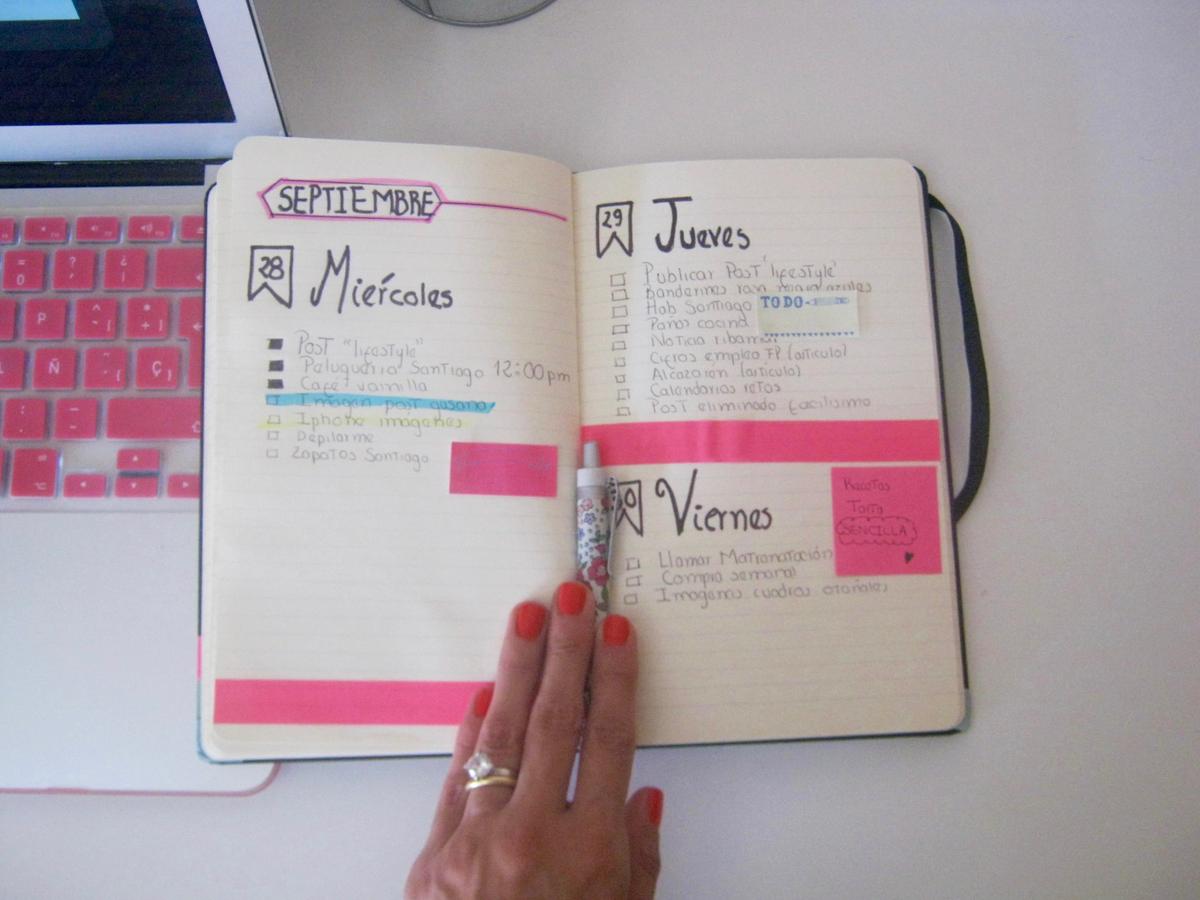 SEPTIEMBRE
28 Miércoles
Post "lifestyle"
Peluquería Santiago 12:00pm
Café vainilla
Imagen post gusano
Iphone imágenes
Depilarme
Zapatos Santiago
29 Jueves
Publicar Post "lifestyle"
banderines
Hab Santiago
TODO
Paños cocina
Noticia
Cifras empleo FP (artículo)
Alcazarén (artículo)
Calendarios retos
Post eliminado facilisimo
Viernes
Recetas
Tarta
SENCILLA
Llamar Matronatación
Compra semanal
Imágenes cuadros otoñales
= 0
? '
¿ ¡
P
^ ~ [
* + ]
Ñ
Ç
: .
_ -